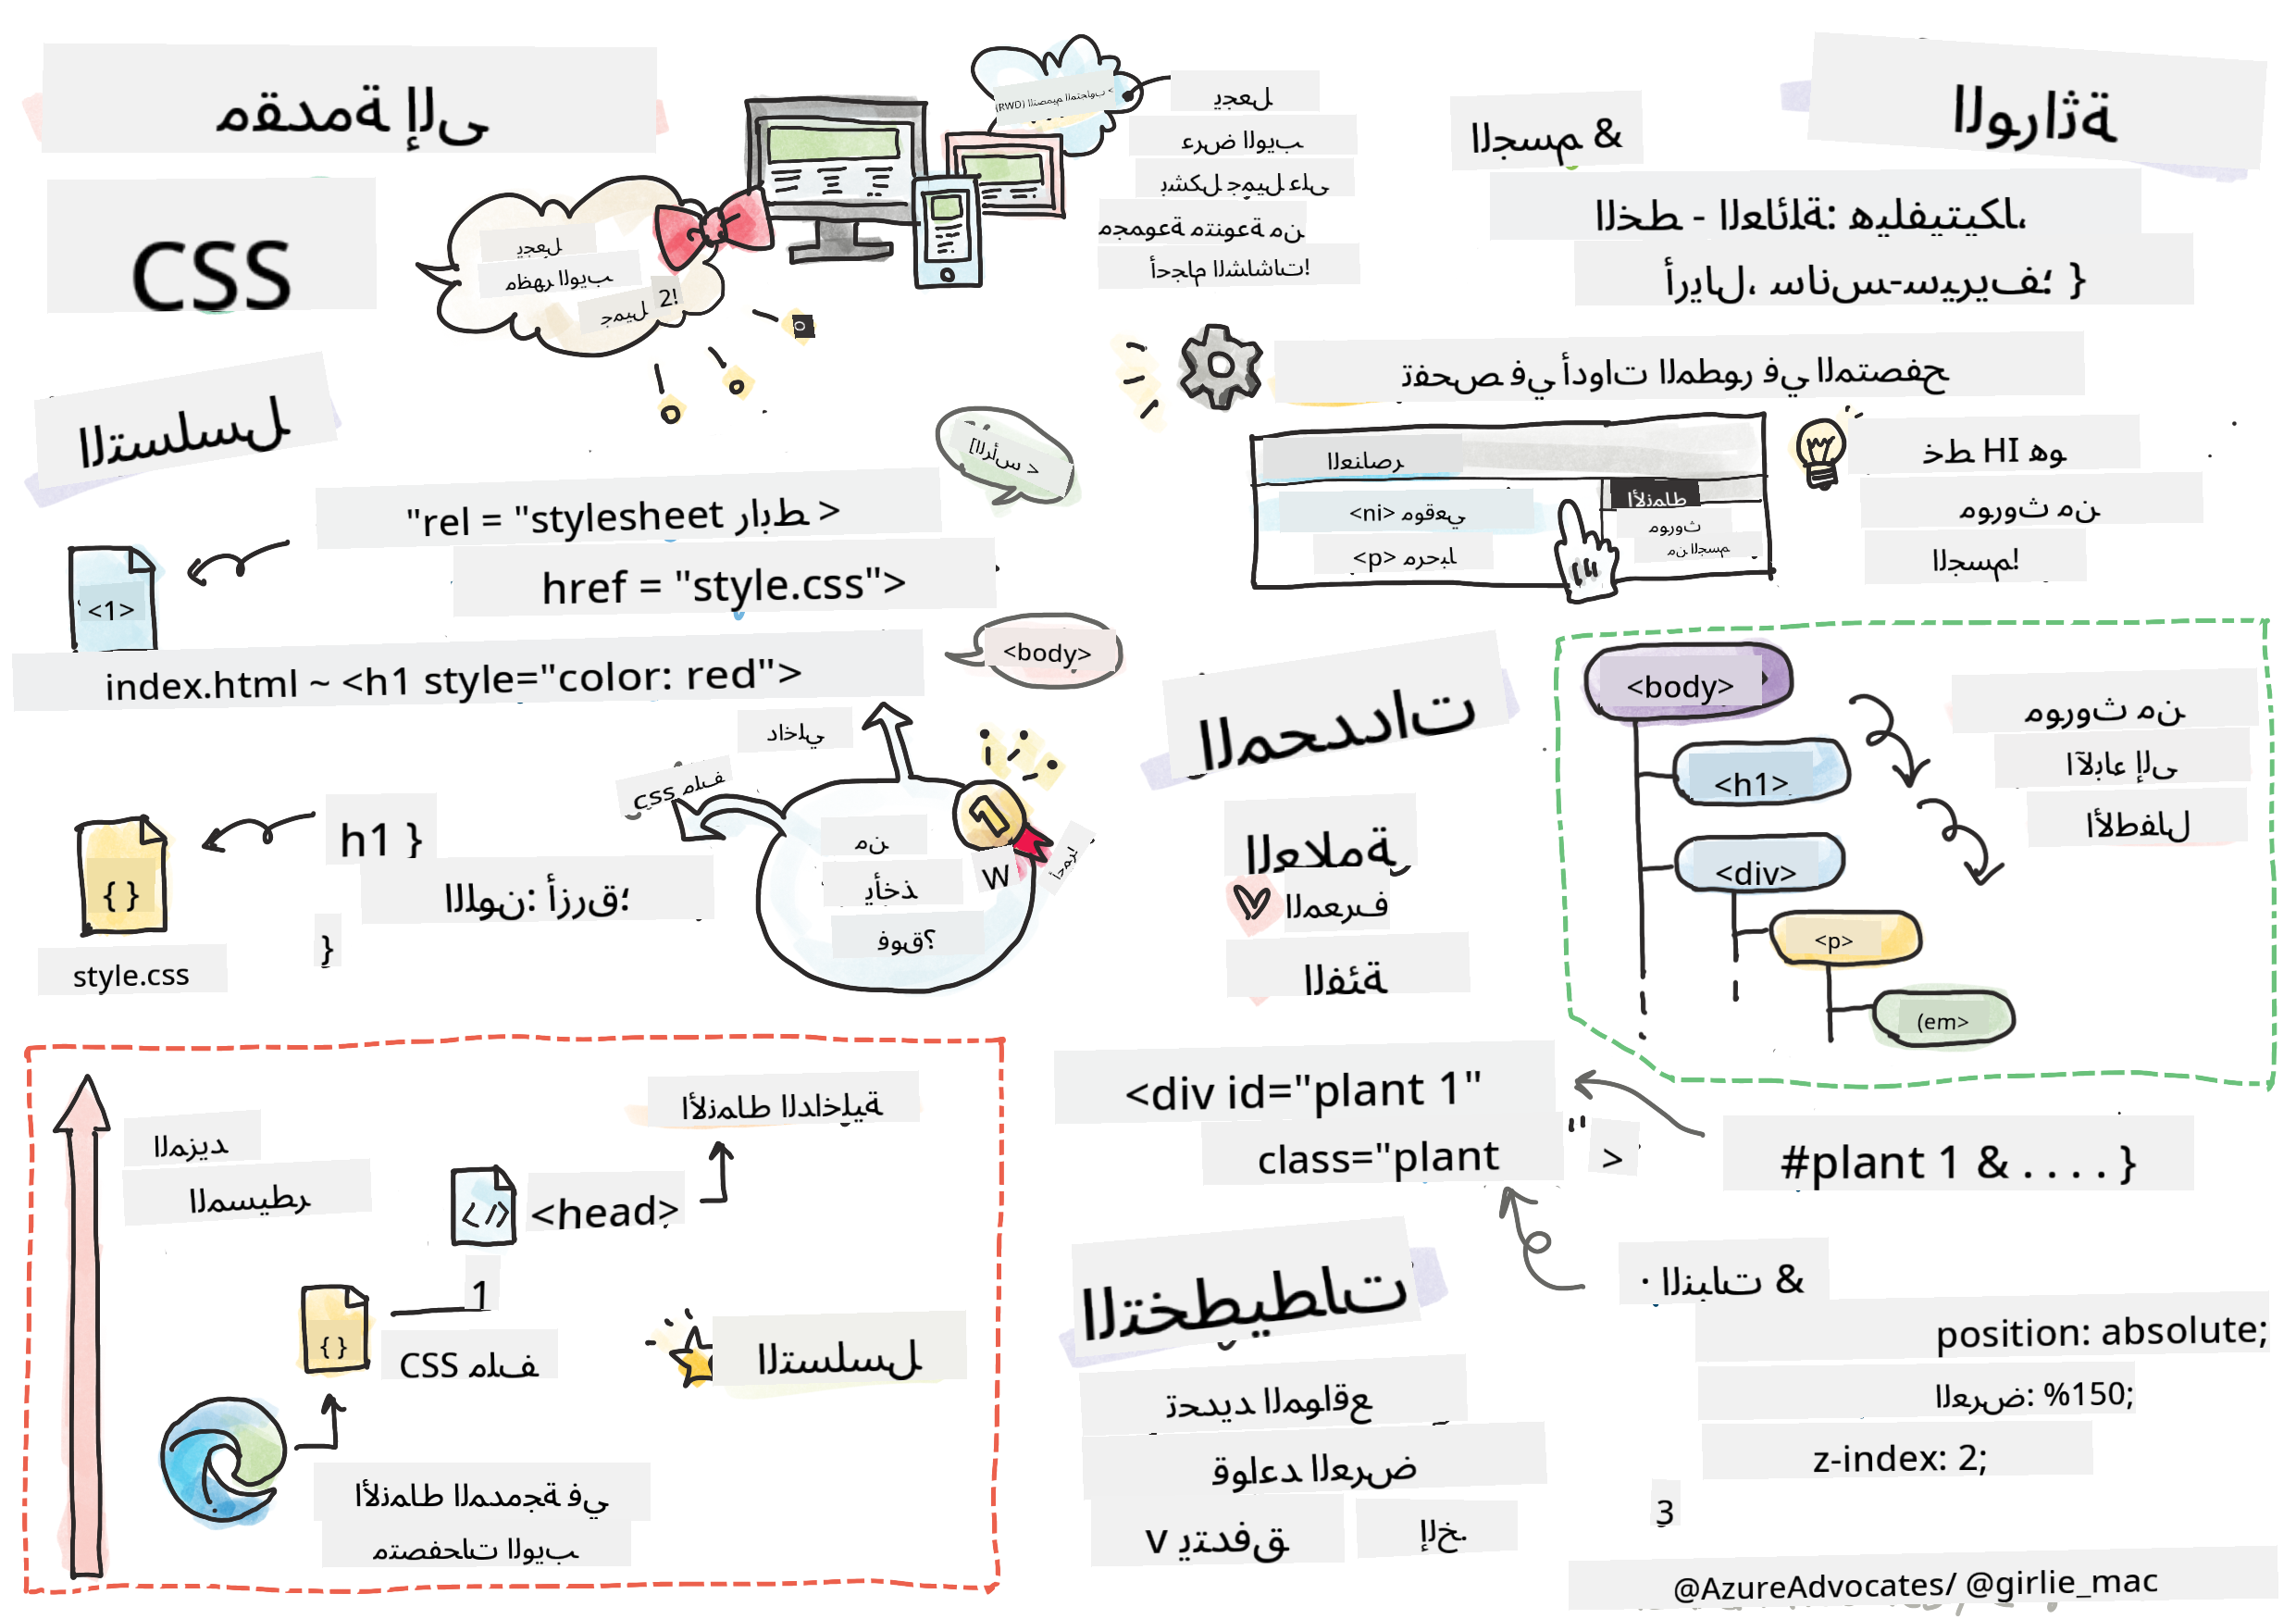 مقدمة إلى
CSS
يجعل
مظهر الويب
جميل 2!
(RWD) التصميم المتجاوب >
يجعل
عرض الويب
بشكل جميل على
مجموعة متنوعة من
أحجام الشاشات!
التسلسل
[الرأس >
"rel = "stylesheet رابط >
href = "style.css">
<1>
index.html ~ <h1 style="color: red">
<body>
داخلي
css ملف
h1 }
اللون: أزرق؛
}
{ }
style.css
من
يأخذ
فوق؟
1
W
أحمر!
المزيد
المسيطر
الأنماط الداخلية
</>
<head>
1
{ }
CSS ملف
التسلسل
الأنماط المدمجة في
متصفحات الويب
الوراثة
الجسم &
الخط - العائلة: هيلفيتيكا،
أريال، سانس-سيريف؛ }
تفحص في أدوات المطور في المتصفح
العناصر
<ni> موقعي
<p> مرحبا
الأنماط
موروث
من الجسم
خط HI هو
موروث من
الجسم!
المحددات
العلامة
المعرف
الفئة
<body>
<h1>
<div>
<p>
(em>
موروث من
الآباء إلى
الأطفال
<div id="plant 1"
class="plant " >
#plant 1 & . . . . }
· النبات &
position: absolute;
العرض: %150;
z-index: 2;
3
التخطيطات
تحديد المواقع
قواعد العرض
v يتدفق
إلخ.
@AzureAdvocates/ @girlie_mac